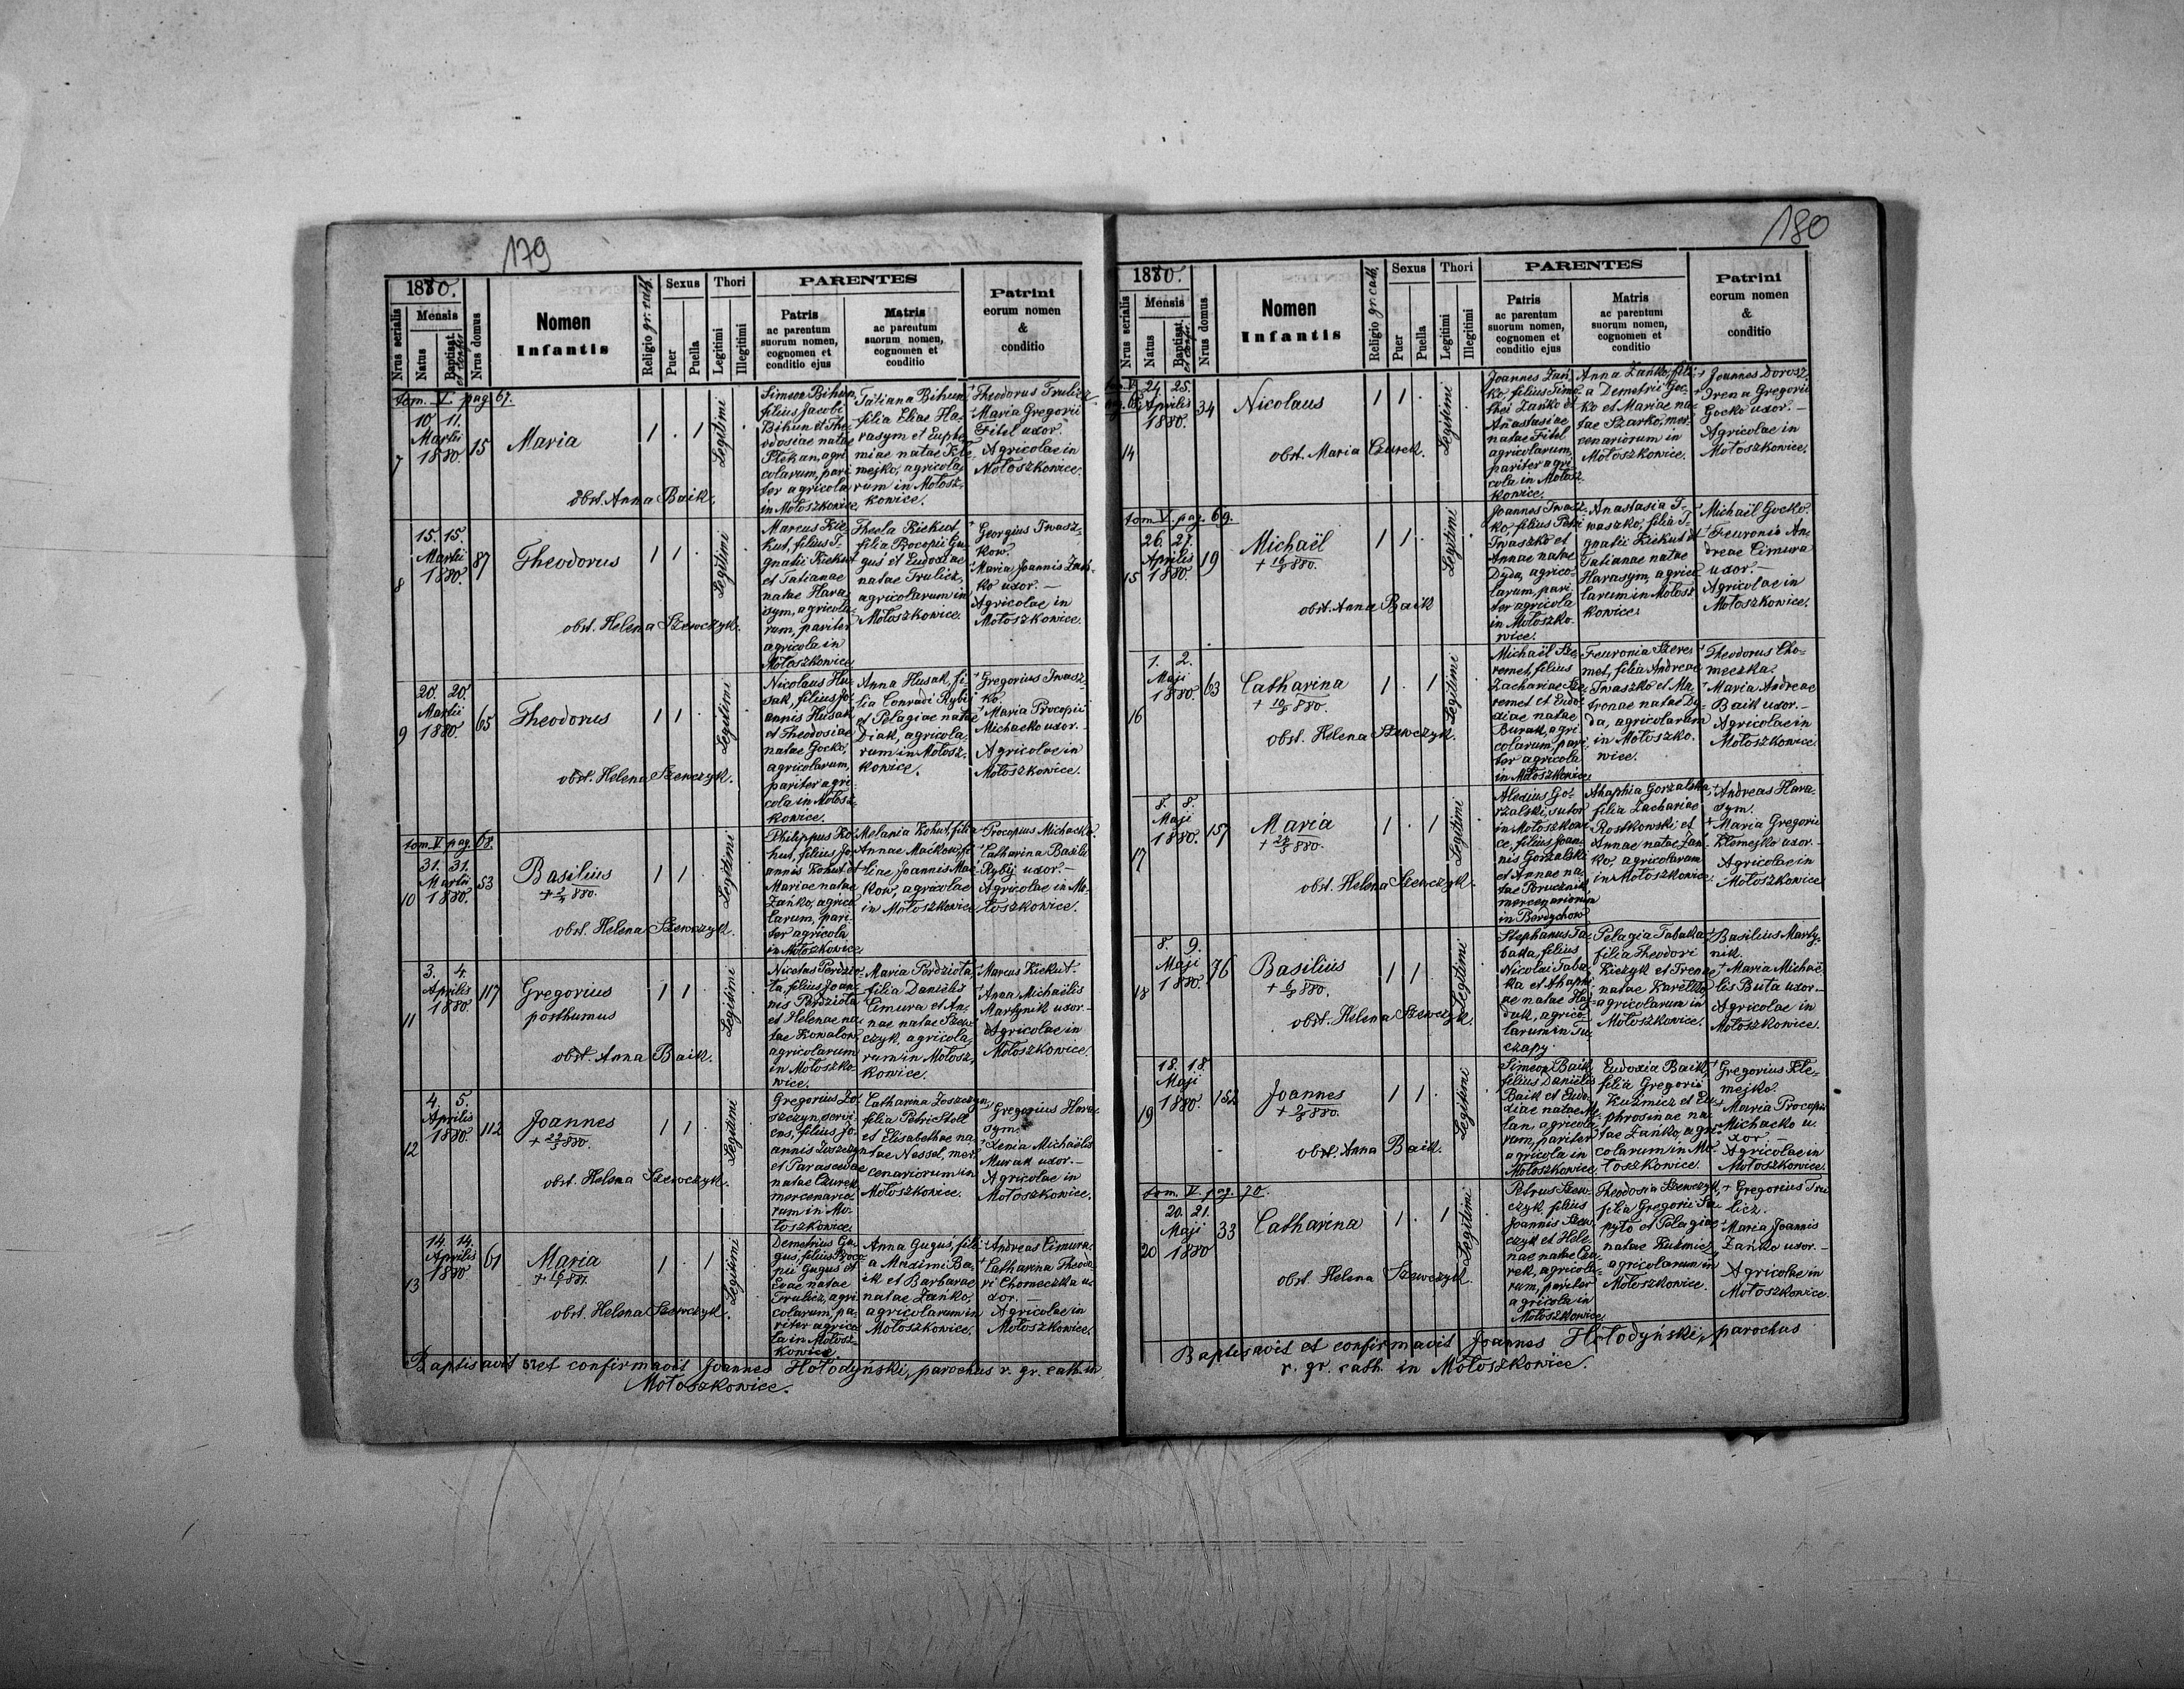 179
1880.
Nrus serialis
Mensis
Natus
Baptisat. et confir.
Nrus domus
Nomen
Infantis
Religio gr. cath.
Sexus
Puer
Puella
Thori
Legitimi
Illegitimi
PARENTES
Patris
ac parentum
suorum nomen,
cognomen et
conditio ejus
Matris
ac parentum
suorum nomen,
cognomen et
conditio
Patrini
eorum nomen
&
conditio
tom. V. pag. 67.
7
10. 11.
Martii
1880.
15
Maria
obst. Anna Baik.
Legitimi
Simeon Bihun,
filius Jacobi
Bihun et The-
odosiae natae
Stekan, agri-
colarum, pari-
ter agricola
in Mołoszkowice.
Tatiana Bihun
filia Eliae Ha-
rasym et Euphe-
miae natae Kle-
mejko, agricola-
rum in Mołosz-
kowice.
Theodorus Trulicz
Maria Gregorii
Fitel uxor.
Agricolae in
Mołoszkowice.
8
15. 15.
Martii
1880.
87
Theodorus
obst. Helena Szewczyk.
Legitimi
Marcus Kie-
kut, filius I-
gnatii Kiekut
et Tatianae
natae Hara-
sym, agricola-
rum, pariter
agricola in
Mołoszkowice
Thecla Kiekut,
filia Procopii Gu-
gus et Eudoxiae
natae Trulicz,
agricolarum in
Mołoszkowice.
Georgius Iwasz-
kow.
Maria Joannis Zań-
ko uxor. —
Agricolae in
Mołoszkowice.
9
20. 20.
Martii
1880.
65
Theodorus
obst. Helena Szewczyk.
Legitimi
Nicolaus Hu-
sak, filius Jo-
annis Husak
et Theodosiae
natae Gocko,
agricolarum,
pariter agri-
cola in Mołosz-
kowice.
Anna Husak, fi-
lia Conradi Rybij
et Pelagiae natae
Diak, agricola-
rum in Mołosz-
kowice.
Gregorius Iwasz-
ko.
Maria Procopii
Michacko uxor.
Agricolae in
Mołoszkowice.
tom. V. pag. 68.
10
31. 31.
Martii
1880.
53
Basilius
obst. Helena Szewczyk.
Legitimi
Philippus Ko-
hut, filius Jo-
annis Kohut et
Mariae natae
Zańko, agrico-
larum, pari-
ter agricola
in Mołoszkowice.
Melania Kohut, filia
Annae Maćkow, fi-
liae Joannis Mać-
kow, agricolae
in Mołoszkowice.
Procopius Michacko.
Catharina Basilii
Rybij uxor. —
Agricolae in Mo-
łoszkowice.
11
3. 4.
Aprilis
1880.
117
Gregorius
posthumus
obst. Anna Baik.
Legitimi
Nicolaus Perdzio-
ta, filius Joan-
nis Perdziota
et Helenae na-
tae Kowalow,
agricolarum
in Mołoszko-
wice.
Maria Perdziota
filia Danielis
Cimura et An-
nae natae Szew-
czyk, agricola-
rum in Mołosz-
kowice.
Marcus Kiekut.
Anna Michaëlis
Martynik uxor.
Agricolae in
Mołoszkowice.
12
4. 5.
Aprilis
1880.
112
Joannes
obst. Helena Szewczyk.
Legitimi
Gregorius Zo-
szczyn, servi-
ens, filius Jo-
annis Zoszczyn
et Parascevae
natae Czurek,
mercenario-
rum in Mo-
łoszkowice.
Catharina Zoszczyn,
filia Petri Stoll
et Elisabethae na-
tae Nessel, mer-
cenariorum in
Mołoszkowice.
Gregorius Hara-
sym.
Xenia Michaëlis
Murak uxor. —
Agricolae in
Mołoszkowice.
13
14. 14.
Aprilis
1880
61
Maria
obst. Helena Szewczyk.
Legitimi
Demetrius Gu-
gus, filius Proco-
pii Gugus et
Evae natae
Trulicz, agri-
colarum, pa-
riter agrico-
la in Mołosz-
kowice.
Anna Gugus, fili-
a Maximi Ba-
ik et Barbarae
natae Zańko,
agricolarum in
Mołoszkowice.
Andreas Cimura.
Catharina Theodo-
ri Chomeczka u-
xor. —
Agricolae in
Mołoszkowice.
Baptisavit et confirmavit Joannes Hołodyński, parochus r. gr. cath. in
Mołoszkowice.
180
1880.
Nrus serialis
Mensis
Natus
Baptisat. et confir.
Nrus domus
Nomen
Infantis
Religio gr. cath.
Sexus
Puer
Puella
Thori
Legitimi
Illegitimi
PARENTES
Patris
ac parentum
suorum nomen,
cognomen et
conditio ejus
Matris
ac parentum
suorum nomen,
cognomen et
conditio
Patrini
eorum nomen
&
conditio
14
24. 25.
Aprilis
1880.
34
Nicolaus
obst. Maria Czurek.
Legitimi
Joannes Zań-
ko, filius Timo-
thei Zańko et
Anastasiae
natae Fitel
agricolarum,
pariter agri-
cola in Mołosz-
kowice.
Anna Zańko, fili-
a Demetrii Goc-
ko et Mariae na-
tae Szarko, mer-
cenariorum in
Mołoszkowice.
Joannes Dorosz.
Irena Gregorii
Gocko uxor. —
Agricolae in
Mołoszkowice.
tom. V. pag. 69.
15
26. 27.
Aprilis
1880.
19
Michaël
obst. Anna Baik
Legitimi
Joannes Iwasz-
ko, filius Petri
Iwaszko et
Annae natae
Dyda, agrico-
larum, pari-
ter agricola
in Mołoszko-
wice.
Anastasia I-
waszko, filia I-
gnatii Kiekut et
Tatianae natae
Harasym, agrico-
larum in Mołosz-
kowice.
Michaël Gocko.
Feuronia An-
dreae Cimura
uxor. —
Agricolae in
Mołoszkowice.
16
1. 2.
Maji
1880.
63
Catharina
obst. Helena Szewczyk.
Legitimi
Michaël Sze-
remet, filius
Zachariae Sze-
remet et Eudo-
xiae natae
Burak, agri-
colarum, pari-
ter agricola
in Mołoszkowice.
Feuronia Szere-
met, filia Andreae
Iwaszko et Ma-
tronae natae Dy-
da, agricolarum
in Mołoszko-
wice.
Theodorus Cho-
meczka.
Maria Andreae
Baik uxor. —
Agricolae in
Mołoszkowice.
17
8. 8.
Maji
1880.
157
Maria
obst. Helena Szewczyk.
Legitimi
Alexius Go-
rzalski, sutor
in Mołoszkowi-
ce, filius Joan-
nis Gorzalski
et Annae na-
tae Porucznik,
mercenariorum
in Berdychow
Ahaphia Gorzalska,
filia Zachariae
Rostkowski et
Annae natae Zań-
ko, agricolarum
in Mołoszkowice.
Andreas Hara-
sym.
Maria Gregorii
Klemejko uxor. —
Agricolae in
Mołoszkowice
18
8. 9.
Maji
1880.
76
Basilius
obst. Helena Szewczyk.
Legitimi
Stephanus Ta-
baka, filius
Nicolai Taba-
ka et Ahaphi-
ae natae Haj-
duk, agrico-
larum in Tu-
czapy.
Pelagia Tabaka,
filia Theodori
Kiczyk et Irenae
natae Karełko,
agricolarum in
Mołoszkowice.
Basilius Marty-
nik.
Maria Michaë-
lis Buta uxor. —
Agricolae in
Mołoszkowice.
19
18. 18.
Maji
1880.
152
Joannes
obst. Anna Baik.
Legitimi
Simeon Baik,
filius Daniëlis
Baik et Eudo-
xiae natae
agricola-
rum, pariter
agricola in
Mołoszkowice.
Eudoxia Baik,
filia Gregorii
Kuźmicz et Eu-
phrosinae na-
tae Zańko, agri-
colarum in Mo-
łoszkowice.
Gregorius Kle-
mejko.
Maria Procopii
Michacko u-
xor. —
Agricolae in
Mołoszkowice.
tom. V. pag. 70.
20
20. 21.
Maji
1880
33
Catharina
obst. Helena Szewczyk.
Legitimi
Petrus Szew-
czyk, filius
Joannis Szew-
czyk et Hele-
nae natae Czu-
rek, agricola-
rum, pariter
agricola in
Mołoszkowice.
Theodosia Szewczyk,
filia Gregorii Sa-
pyto et Pelagiae
natae Kuźmicz,
agricolarum in
Mołoszkowice.
Gregorius Tru-
licz.
Maria Joannis
Zańko uxor. —
Agricolae in
Mołoszkowice.
Baptisavit et confirmavit Joannes Hołodyński, parochus
r. gr. cath. in Mołoszkowice.